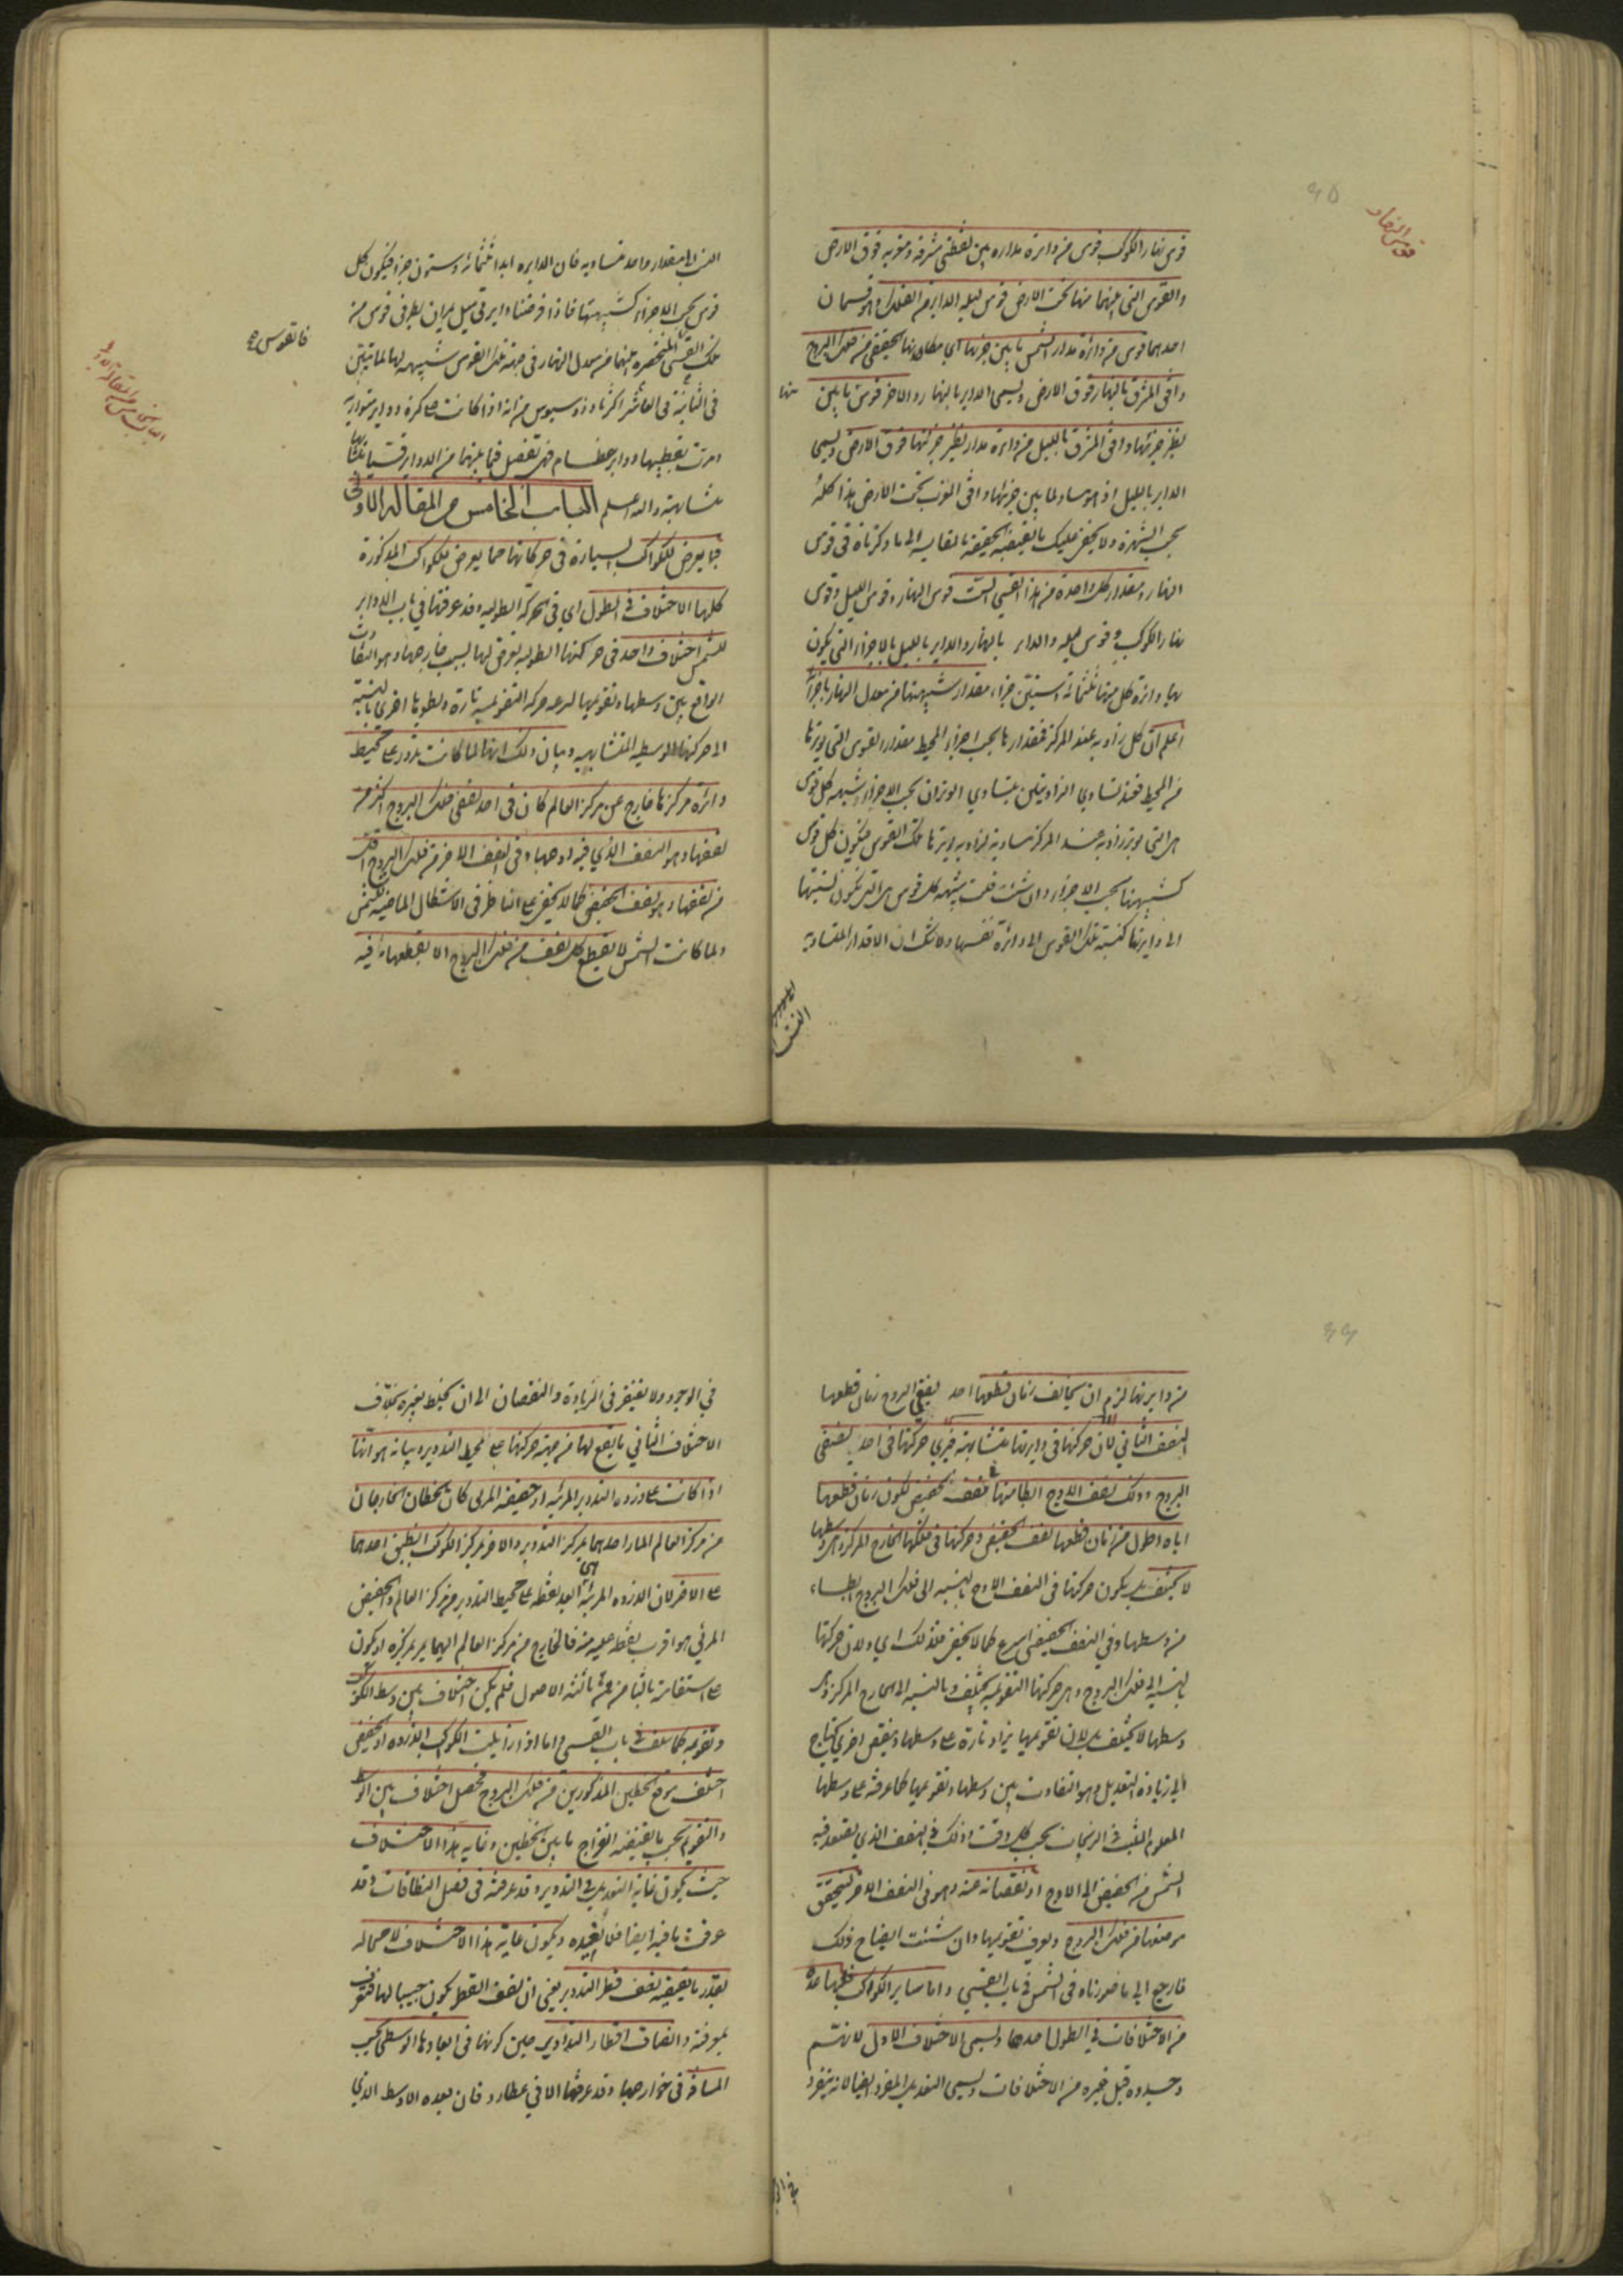 قوس النهار
٦٥
قوس نهار الكوكب قوس من دائرة مداره بين نقطتى مشرقه ومغربه فوق الارض
والقوس التى بينهما منها تحت الارض قوس ليله الداير من الفلك وهو قسمان
احدهما قوس من دائرة مدار الشمس ما بين جزئها اي مكانها الحقيقى من فلك البروج
وافق المشرق بالنهار فوق الارض ويسمى الداير بالنهار والاخر قوس ما بين
منها
نظير جزئها وافق المشرق بالليل من دائرة مدار نظير جزئها فوق الارض ويسمى
الداير بالليل اذ هو مساو لما بين جزئها وافق المغرب تحت الارض هذا كله
بحسب الشهرة ولا يخفى عليك ما يقتضيه الحقيقة بالمقايسة الى ما ذكرناه فى قوس
النهار ومقدار كل واحدة من هذه القسى الست قوس النهار وقوس الليل وقوس
نهار الكوكب وقوس ليله والداير بالنهار والداير بالليل بالاجزاء التى يكون
بها دائرة كل منها ثلثمائة وستين جزءا مقدار شبيهتها من معدل النهار باجزائه
اعلم ان كل زاوية عند المركز فمقدارها بحسب اجزاء المحيط مقدار القوس التى يوترها
من المحيط فعند تساوي الزاويتين يتساوي الوتران بحسب الاجزاء وشبيهة كل قوس
هى التى يوتر زاوية عند المركز مساوية لزاوية يوترها تلك القوس فيكون كل قوس
كشبيهتها بحسب الاجزاء وان شئت قلت شبيهة كل قوس هى التى يكون نسبتها
الى دايرتها كنسبة تلك القوس الى دائرة نفسها ولا شك ان الاقدار المتساوية
النسب
النسب الى مقدار واحد متساوية فان الدايرة ابدا ثلثمائة وستون جزءا فيكون كل
قوس بحسب الاجزاء كشبيهتها فاذا فرضنا دايرتى ميل يمران بطرفى قوس من
تلك القسى المنحصرة بينهما من معدل النهار فى جهة تلك القوس شبيهة بها لما تبين
فالقوس
الباب الخامس من المقالة الاولى
فى الثانية فى العاشر اكرثاوذوسيوس من انه اذا كانت على كرة دواير متوازية
ومرت بقطبيها دواير عظام فهى تفصل فيما بينها من الدواير قسيا
متشابهة والله اعلم الباب الخامس من المقالة الاولى
فيما يعرض للكواكب السيارة فى حركاتها مما يعرض للكواكب المذكورة
كلها الاختلاف فى الطول اي فى الحركة الطولية وقد عرفتها فى باب الدواير
للشمس اختلاف واحد فى حركتها الطولية يعرض لها بسبب خارجها وهو التفاوت
الواقع بين وسطها وتقويمها لسرعة حركة التقويمية تارة وبطوها اخرى بالنسبة
الى حركتها الوسطية المتشابهة وبيان ذلك انها لما كانت يدور على محيط
دائرة مركزها خارج عن مركز العالم كان فى احد نصفى فلك البروج اكثر من
نصفها وهو النصف الذي فيه اوجها وفى النصف الاخر من فلك البروج اقل
من نصفها وهو نصف الحضيض كما لا يخفى على الناظر فى الاشكال الماضية للشمس
ولما كانت الشمس لا يقطع كل نصف من فلك البروج الا بقطعها ما فيه
٦٦
من دايرتها لزم ان يخالف زمان قطعها احد نصفى البروج زمان قطعها
النصف الثانى لان حركتها فى دايرتها متشابهة فيرى حركتها فى احد نصفى
البروج وذلك نصف الاوج ابطا منها فى نصف الحضيض لكون زمان قطعها
اياه اطول من زمان قطعها نصف الحضيض وحركتها فى فلكها الخارج المركز وهى وسطها
لا يختلف بل يكون حركتها فى النصف الاوج بالنسبة الى فلك البروج ابطاء
من وسطها وفى النصف الحضيضى اسرع كما لا يخفى فلذلك اي ولان حركتها
بالنسبة الى فلك البروج وهى حركتها التقويمية يختلف وبالنسبة الى الخارج المركز وهى
وسطها لا يختلف بل لان تقويمها يزاد تارة على وسطها وينقص اخرى يحتاج
الى زيادة التعديل وهو التفاوت بين وسطها وتقويمها كما عرفت على وسطها
المعلوم المثبت فى الزيجات بحسب كل وقت وذلك فى النصف الذي يصعد فيه
الشمس من الحضيض الى الاوج او نقصانه عنه وهو فى النصف الاخر ليتحقق
موضعها من فلك البروج ويعرف تقويمها وان شئت ايضاح ذلك
فارجع الى ما صورناه فى الشمس فى باب القسى واما ساير الكواكب فلها عدة
من الاختلافات فى الطول احدها ويسمى الاختلاف الاول لانه يستم
وحده قبل غيره من الاختلافات ويسمى التعديل المفرد ايضا لانه ينفرد
فى الو
فى الوجود ولا يفتقر فى الزيادة والنقصان الى ان يخلط بغيره بخلاف
الاختلاف الثانى ما يقع لها من جهة حركتها على محيط التدوير وبيانه هو انها
اذا كانت على ذروة التدوير المرئية او حضيضه المرئى كان الخطان الخارجان
من مركز العالم المار احدهما بمركز التدوير والاخر بمركز الكوكب انطبق احدهما
على الاخر لان الذروة المرئية هى ابعد نقطة على محيط التدوير من مركز العالم والحضيض
المرئى هو اقرب نقطة عليه منه فالخارج من مركز العالم اليهما يمر بمركزه او يكون
على استقامته بالثامن من ثالثة الاصول فلم يكن اختلاف بين وسط الكوكب
وتقويمه كما سلف فى باب القسى واما اذا زايلت الكوكب الذروة او الحضيض
اختلف موقع الخطين المذكورين من فلك البروج فحصل اختلاف بين الوسط
والتقويم بحسب ما يقتضيه انفراج ما بين الخطين وغاية هذا الاختلاف
حيث يكون غاية التعديل فى التدوير وقد عرفته فى فصل النطاقات وقد
عرفت ما فيه ايضا فلا نعيده ويكون غاية هذا الاختلاف لا محالة
بقدر ما يقتضيه نصف قطر التدوير يعنى ان نصف القطر يكون جيبا لها فتعرف
بمعرفته وانصاف اقطار التداوير حين كونها فى ابعادها الوسطى بحسب
المسافة فى خوارجها وقد عرفتها الا فى عطارد فان بعده الاوسط الذي